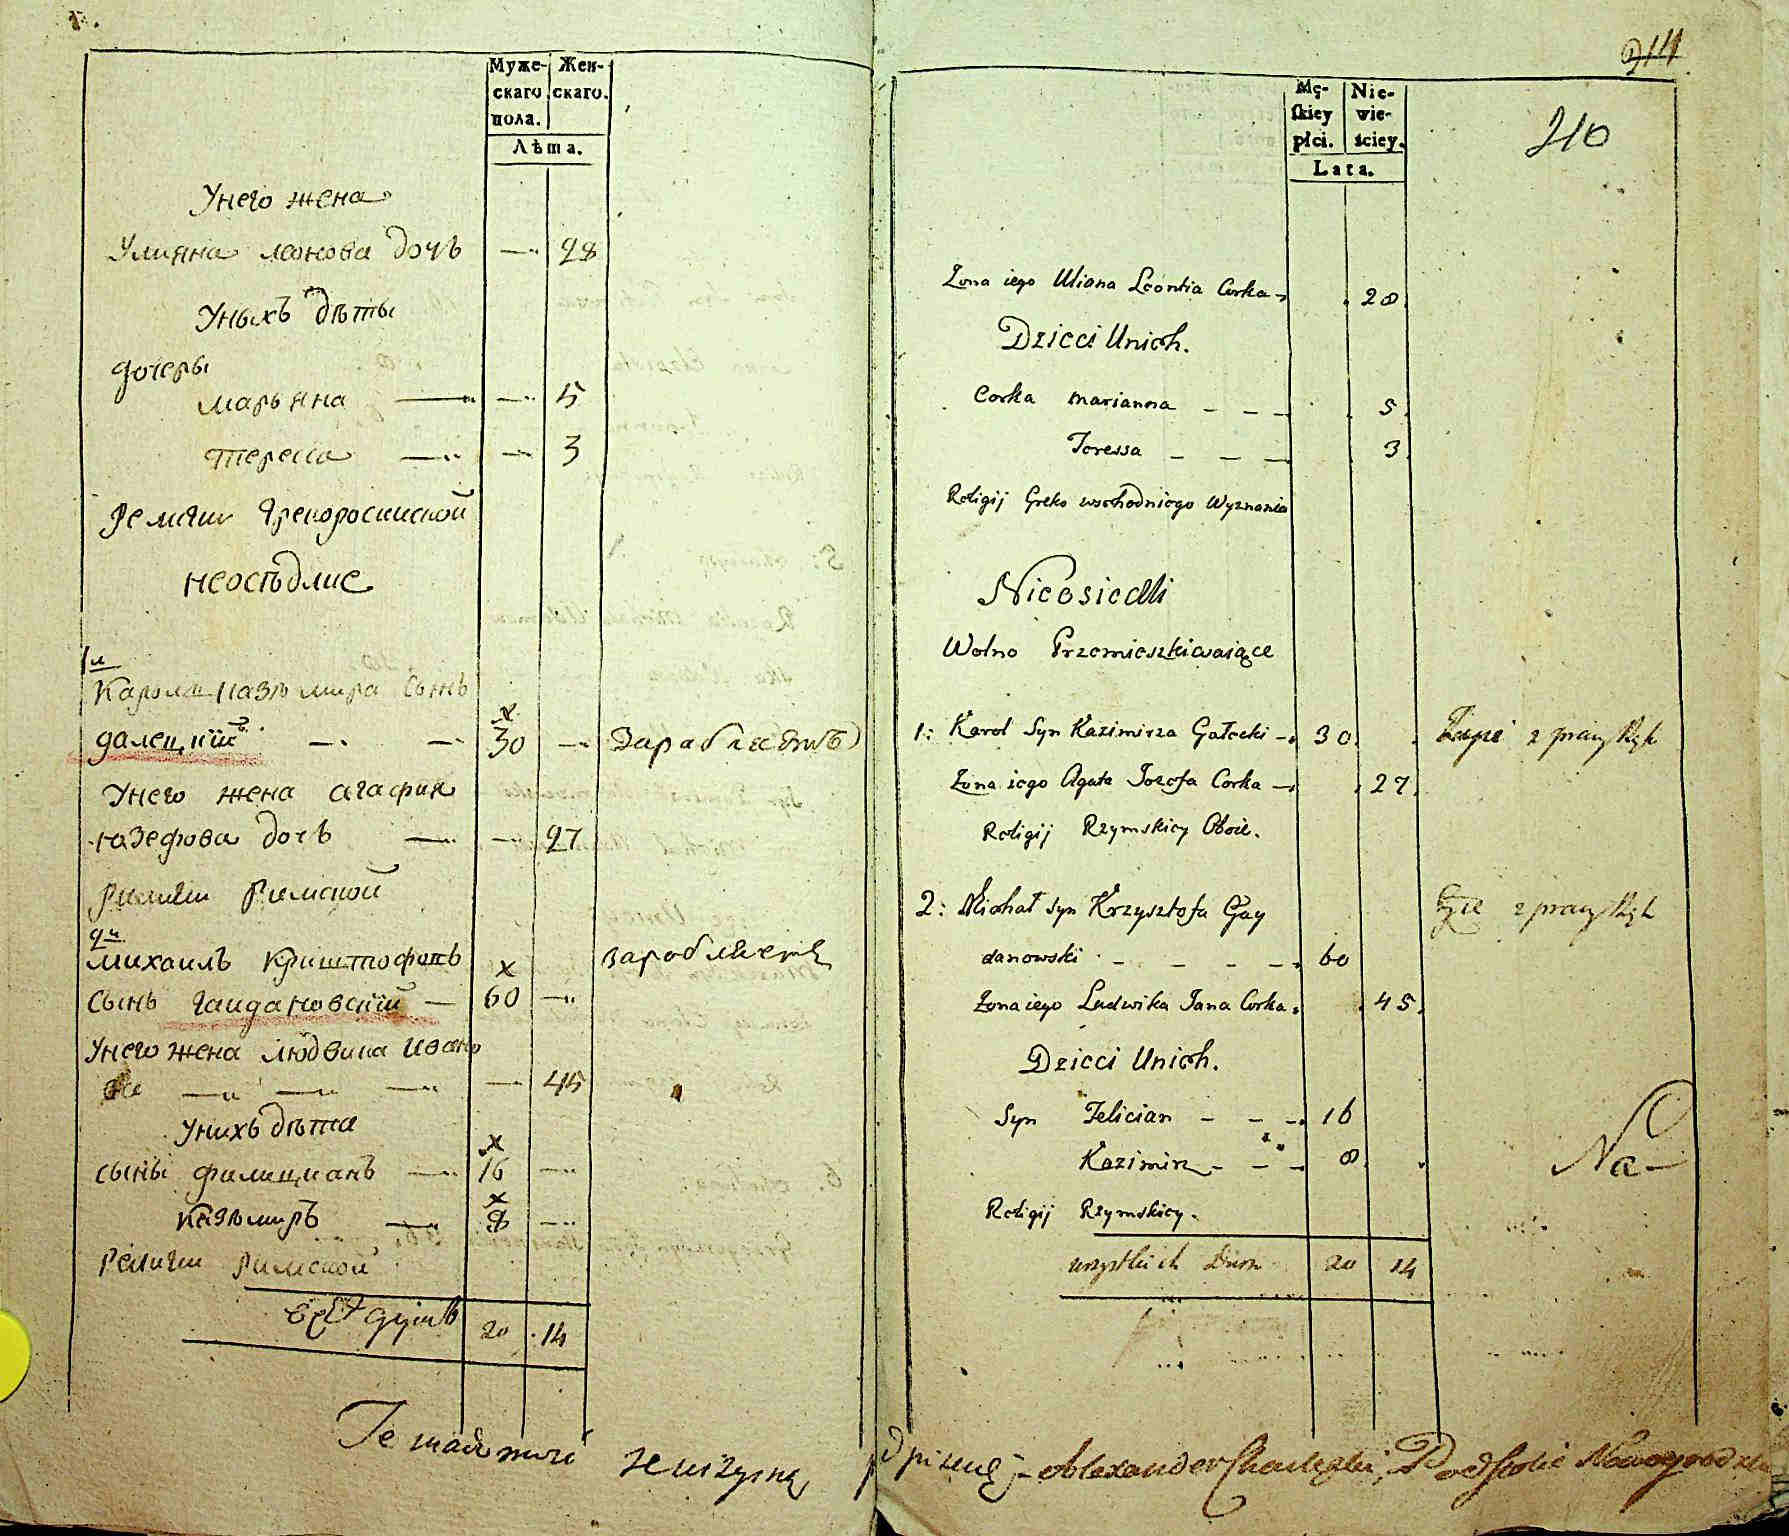 Муже-
скаго
пола.
Жен-
скаго.
Лѣта.
Унего жена
Улияна леонова дочъ — 28
Уныхъ дѣты
дочеры
марьяна — — 5
тересса — — 3
Религии грекоросииской
неосѣдлие
1й
Кароль казѣмира сынъ
галецкий — — 30 —
Унего жена агафия
юзефова дочъ — — 27
религии Римской
2й
михаилъ криштофовъ
зароблястъ
сынъ гайдановский — 60 —
Унего жена людвика ивано
— — — — 45
Унихъ дѣти
сыны филицианъ — 16 —
казѣмиръ — 8 —
Религии римской
всехъ душъ 20 14
214
210
Mę-
skiey
płci.
Nie-
wie-
ściey.
Lata.
Zona iego Uliana Leontia Corka 28
Dzieci Unich.
Corka marianna - - - 5
Teressa - - - 3
Religij Greko wschodniego Wyznania
Nieosiedli
Wolno Przemieszkiwaiące
1: Karol Syn Kazimirza Gałecki - 30
Żyie z pracy Rąk
Zona iego Agata Jozefa Corka - 27
Religij Rzymskiey Oboie.
2: Michał syn Krzysztofa Gay
Żyie z pracy Rąk
danowski - - - - 60
Zona iego Ludwika Jana Corka 45
Dzieci Unich.
Syn Felician - - - 16
Kazimirz - - - 8
Na
Religij Rzymskiey.
wszystkich Dusz 20 14
Podpisuię - Alexander Podstolic Nowogrodzki